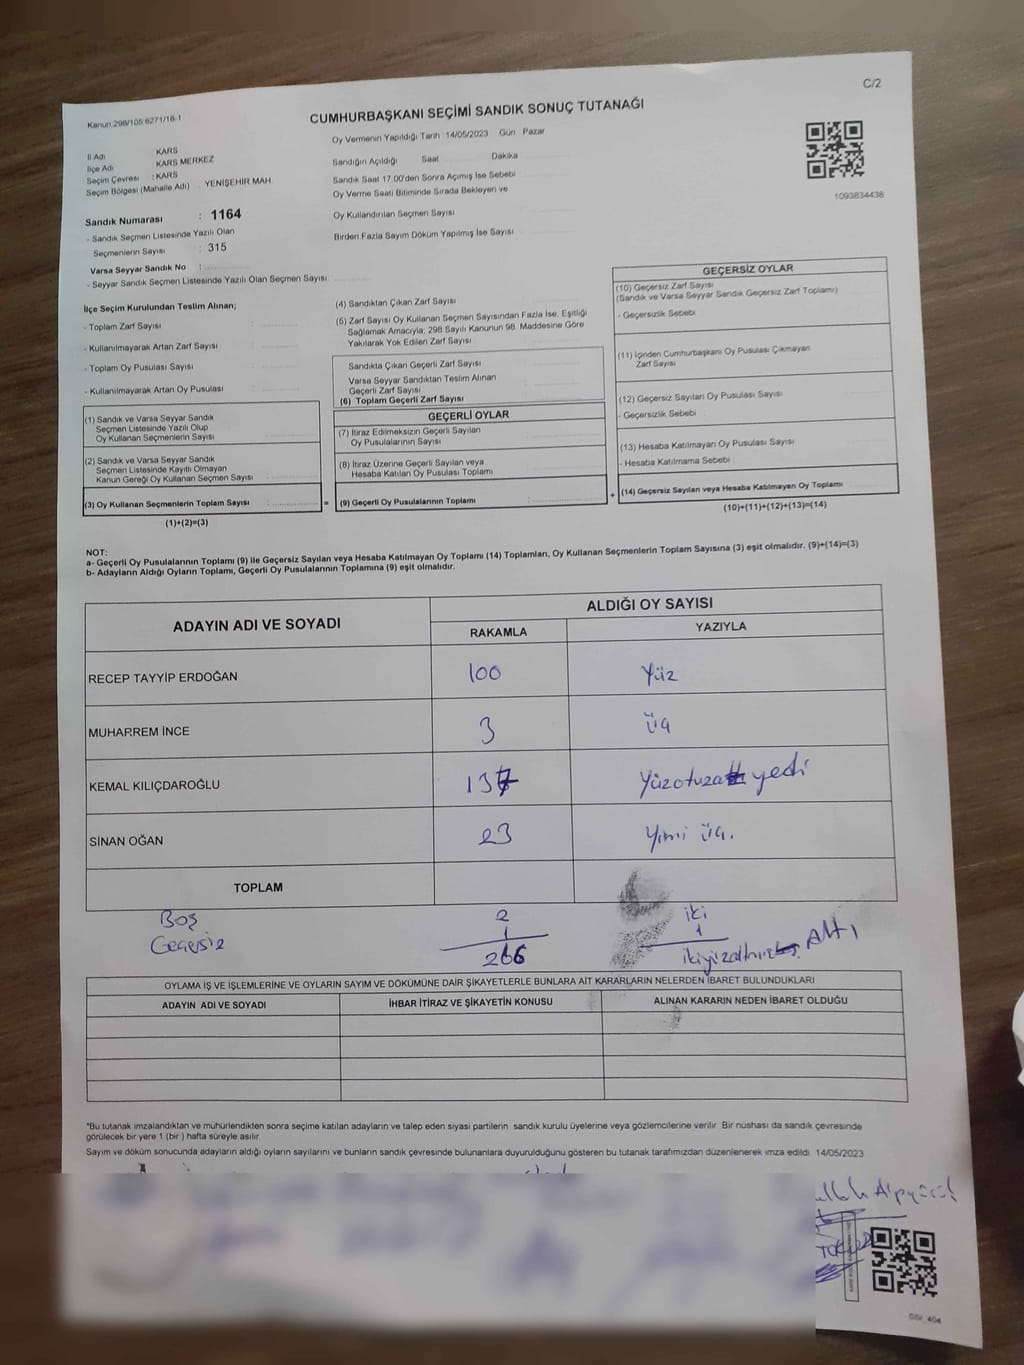 C/2
Kanun:298/105:6271/18-1
CUMHURBAŞKANI SEÇİMİ SANDIK SONUÇ TUTANAĞI
Oy Vermenin Yapıldığı Tarih 14/05/2023 Gün Pazar
İl Adı KARS
İlçe Adı KARS MERKEZ
Seçim Çevresi : KARS
Seçim Bölgesi (Mahalle Adı) : YENİŞEHİR MAH
Sandık Numarası : 1164
- Sandık Seçmen Listesinde Yazılı Olan
Seçmenlerin Sayısı : 315
Varsa Seyyar Sandık No :
- Seyyar Sandık Seçmen Listesinde Yazılı Olan Seçmen Sayısı
Sandığın Açıldığı Saat Dakika
Sandık Saat 17.00'den Sonra Açımış İse Sebebi
Oy Verme Saati Bitiminde Sırada Bekleyen ve
Oy Kullandırılan Seçmen Sayısı
Birden Fazla Sayım Döküm Yapılmış İse Sayısı
1093834438
İlçe Seçim Kurulundan Teslim Alınan;
- Toplam Zarf Sayısı :
- Kullanılmayarak Artan Zarf Sayısı :
- Toplam Oy Pusulası Sayısı :
- Kullanılmayarak Artan Oy Pusulası :
(1) Sandık ve Varsa Seyyar Sandık
Seçmen Listesinde Yazılı Olup
Oy Kullanan Seçmenlerin Sayısı
(2) Sandık ve Varsa Seyyar Sandık
Seçmen Listesinde Kayıtlı Olmayan
Kanun Gereği Oy Kullanan Seçmen Sayısı
(3) Oy Kullanan Seçmenlerin Toplam Sayısı :
(1)+(2)=(3)
(4) Sandıktan Çıkan Zarf Sayısı
(5) Zarf Sayısı Oy Kullanan Seçmen Sayısından Fazla İse, Eşitliği
Sağlamak Amacıyla; 298 Sayılı Kanunun 98. Maddesine Göre
Yakılarak Yok Edilen Zarf Sayısı
Sandıkta Çıkan Geçerli Zarf Sayısı
Varsa Seyyar Sandıktan Teslim Alınan
Geçerli Zarf Sayısı
(6) Toplam Geçerli Zarf Sayısı
GEÇERLİ OYLAR
(7) İtiraz Edilmeksizin Geçerli Sayılan
Oy Pusulalarının Sayısı
(8) İtiraz Üzerine Geçerli Sayılan veya
Hesaba Katılan Oy Pusulası Toplamı
= (9) Geçerli Oy Pusulalarının Toplamı :
GEÇERSİZ OYLAR
(10) Geçersiz Zarf Sayısı
(Sandık ve Varsa Seyyar Sandık Geçersiz Zarf Toplamı)
- Geçersizlik Sebebi
(11) İçinden Cumhurbaşkanı Oy Pusulası Çıkmayan
Zarf Sayısı
(12) Geçersiz Sayılan Oy Pusulası Sayısı
- Geçersizlik Sebebi
(13) Hesaba Katılmayan Oy Pusulası Sayısı
- Hesaba Katılmama Sebebi
+ (14) Geçersiz Sayılan veya Hesaba Katılmayan Oy Toplamı
(10)+(11)+(12)+(13)=(14)
NOT:
a- Geçerli Oy Pusulalarının Toplamı (9) ile Geçersiz Sayılan veya Hesaba Katılmayan Oy Toplamı (14) Toplamları, Oy Kullanan Seçmenlerin Toplam Sayısına (3) eşit olmalıdır. (9)+(14)=(3)
b- Adayların Aldığı Oyların Toplamı, Geçerli Oy Pusulalarının Toplamına (9) eşit olmalıdır.
ADAYIN ADI VE SOYADI ALDIĞI OY SAYISI
RAKAMLA YAZIYLA
RECEP TAYYİP ERDOĞAN 100 Yüz
MUHARREM İNCE 3 Üç
KEMAL KILIÇDAROĞLU 137 Yüzotuz yedi
SİNAN OĞAN 23 Yirmi üç.
TOPLAM
Boş 2 iki
Geçersiz 1 1
266 ikiyüzaltmış Altı
OYLAMA İŞ VE İŞLEMLERİNE VE OYLARIN SAYIM VE DÖKÜMÜNE DAİR ŞİKAYETLERLE BUNLARA AİT KARARLARIN NELERDEN İBARET BULUNDUKLARI
ADAYIN ADI VE SOYADI İHBAR İTİRAZ VE ŞİKAYETİN KONUSU ALINAN KARARIN NEDEN İBARET OLDUĞU
*Bu tutanak imzalandıktan ve mühürlendikten sonra seçime katılan adayların ve talep eden siyasi partilerin sandık kurulu üyelerine veya gözlemcilerine verilir. Bir nüshası da sandık çevresinde
görülecek bir yere 1 (bir) hafta süreyle asılır.
Sayım ve döküm sonucunda adayların aldığı oyların sayılarını ve bunların sandık çevresinde bulunanlara duyurulduğunu gösteren bu tutanak tarafımızdan düzenlenerek imza edildi. 14/05/2023